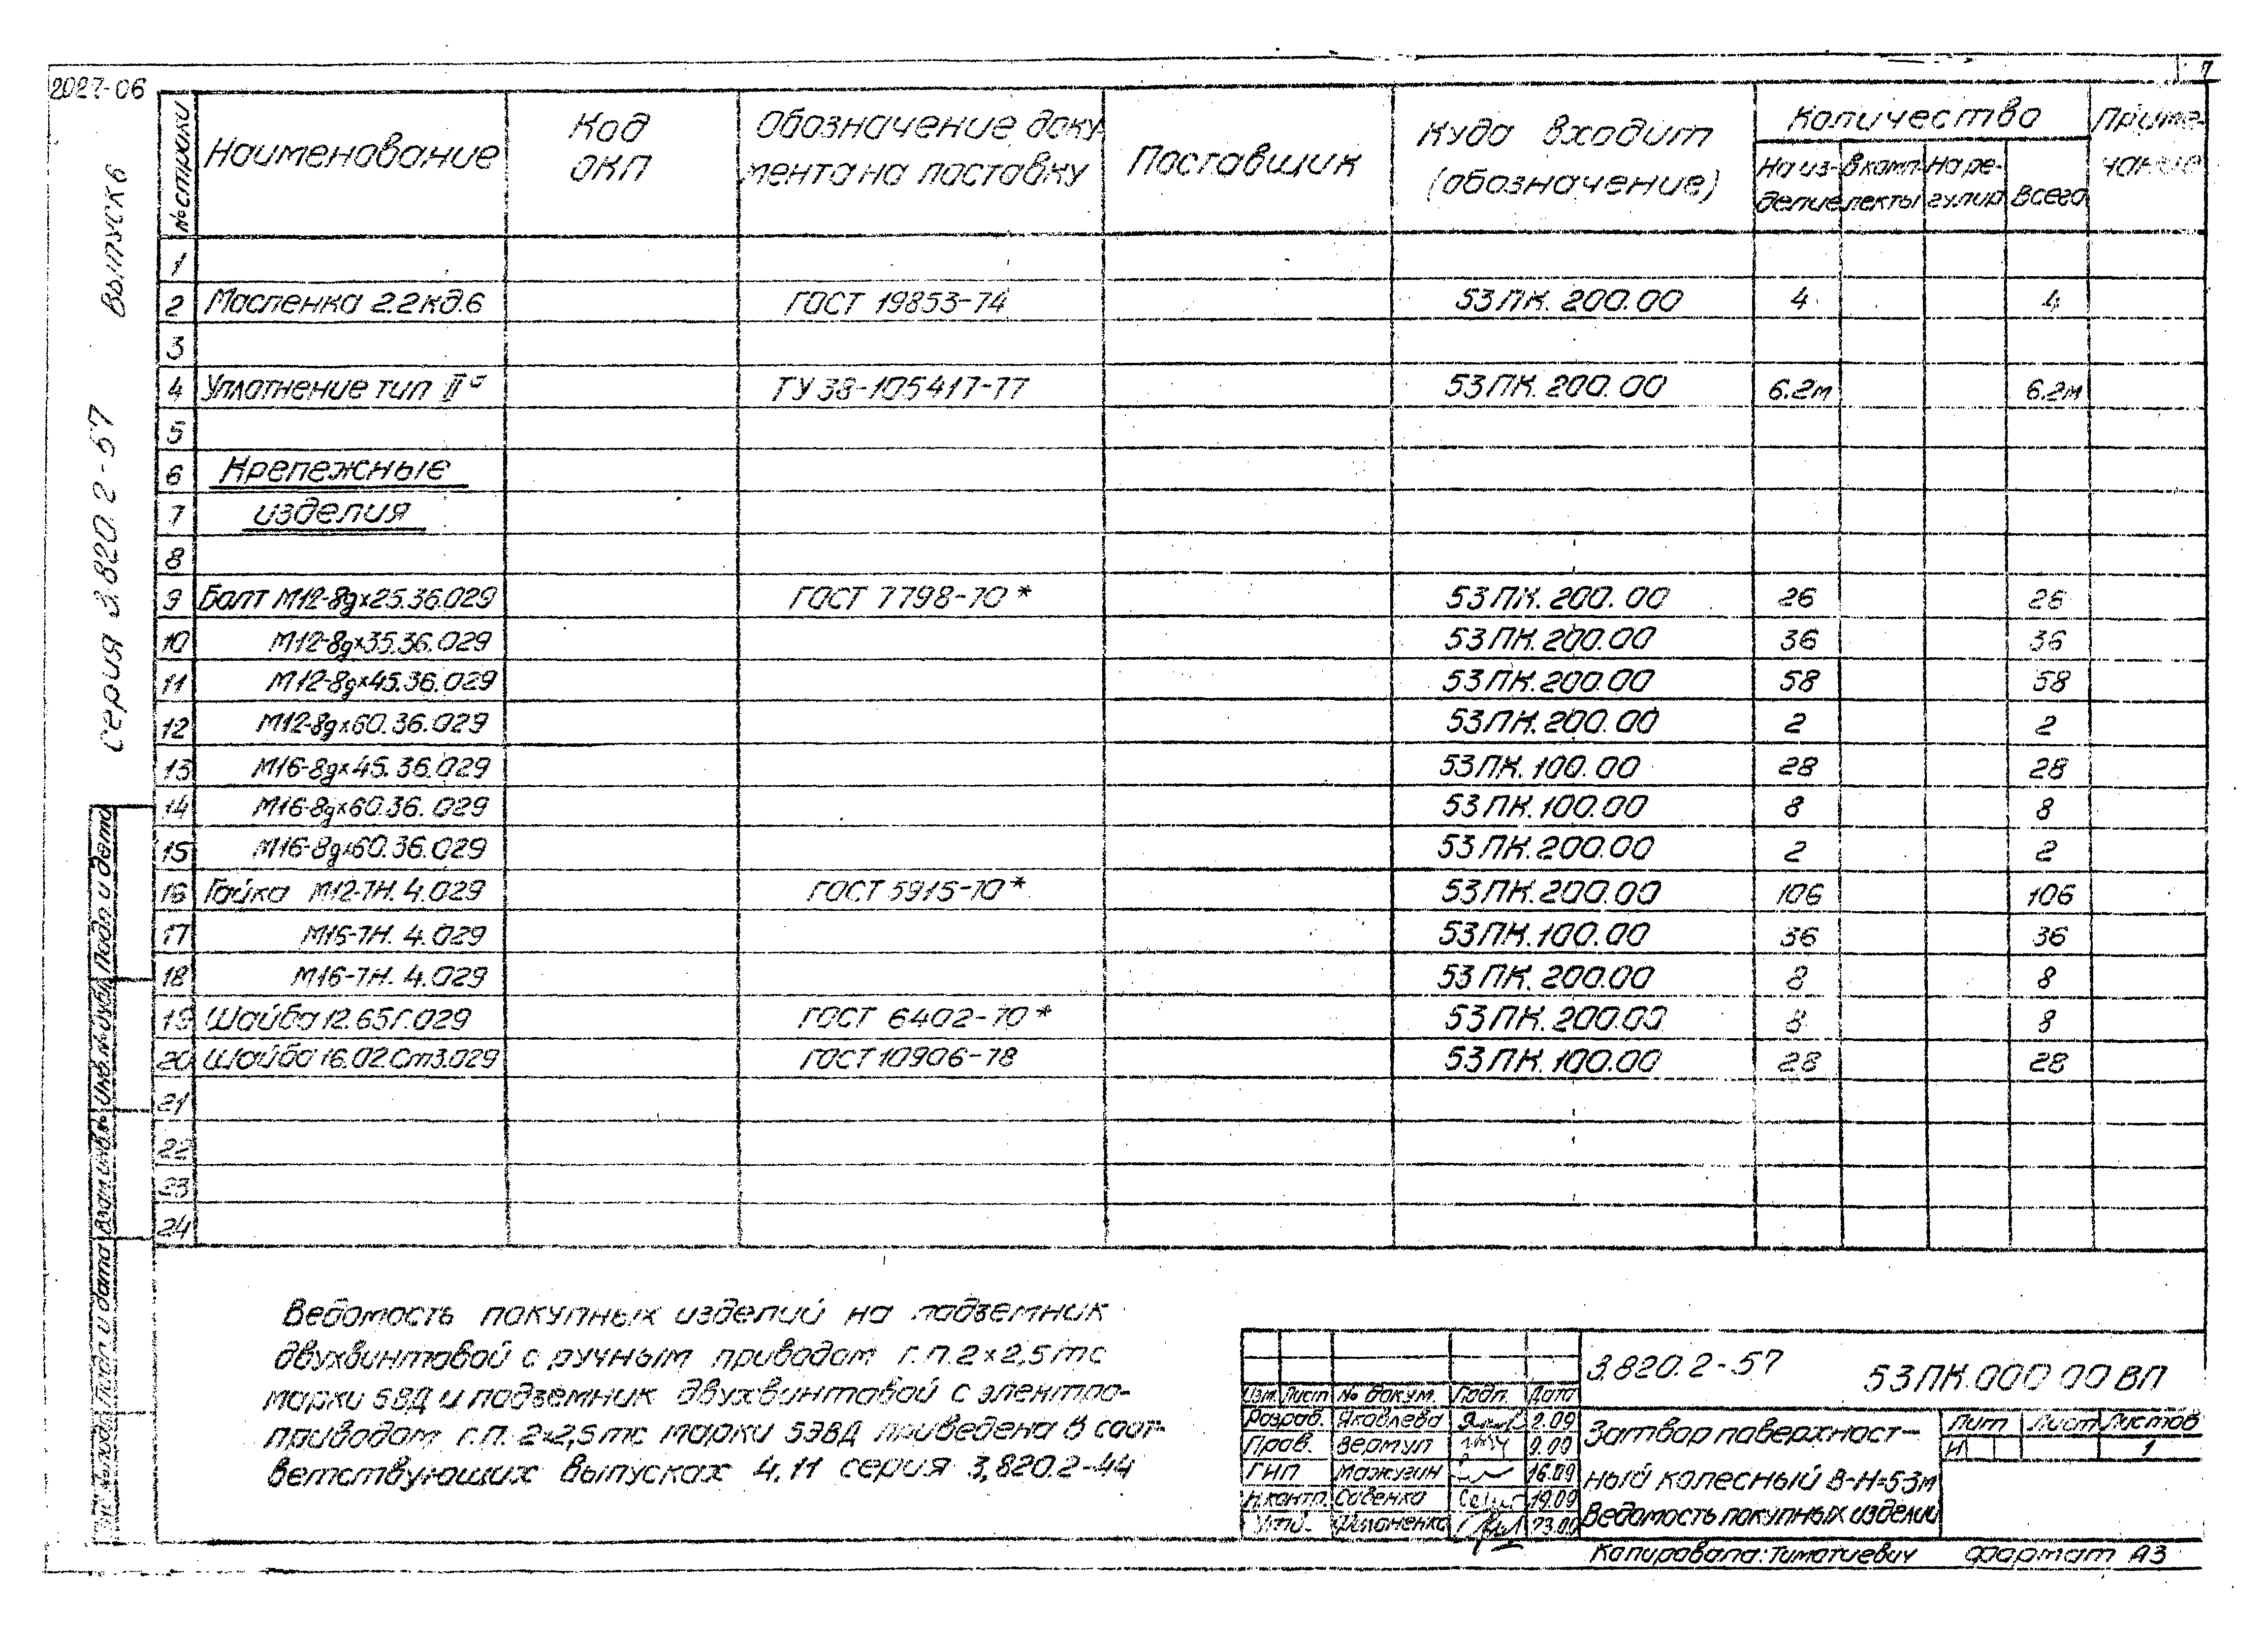 7
2027-06
серия 3.820.2-57 выпуск 6
№ строки Наименование Код ОКП Обозначение документа на поставку Поставщик Куда входит (обозначение) Количество Примечание
На изделие В комплекты На регулир Всего
1
2 Масленка 2.2кд.6 ГОСТ 19853-74 53ПК.200.00 4 4
3
4 Уплотнение тип IIа ТУ38-105417-77 53ПК.200.00 6.2м 6.2м
5
6 Крепежные
7 изделия
8
9 Болт М12-8gх25.36.029 ГОСТ 7798-70* 53ПК.200.00 26 26
10 М12-8gх35.36.029 53ПК.200.00 36 36
11 М12-8gх45.36.029 53ПК.200.00 58 58
12 М12-8gх60.36.029 53ПК.200.00 2 2
13 М16-8gх45.36.029 53ПК.100.00 28 28
14 М16-8gх60.36.029 53ПК.100.00 8 8
15 М16-8gх60.36.029 53ПК.200.00 2 2
16 Гайка М12-7Н.4.029 ГОСТ 5915-70* 53ПК.200.00 106 106
17 М16-7Н.4.029 53ПК.100.00 36 36
18 М16-7Н.4.029 53ПК.200.00 8 8
19 Шайба 12.65Г.029 ГОСТ 6402-70* 53ПК.200.00 8 8
20 Шайба 16.02.Ст3.029 ГОСТ 10906-78 53ПК.100.00 28 28
21
22
23
24
Ведомость покупных изделий на подъемник
двухвинтовой с ручным приводом г.п. 2×2,5тс
марки 5ВД и подъемник двухвинтовой с электро-
приводом г.п. 2×2,5тс марки 5ЭВД приведена в соот-
ветствующих выпусках 4,11 серия 3,820.2-44
3.820.2-57 53ПК.000.00 ВП
Изм. Лист № докум. Подп. Дата
Разраб. Яковлева 2.09
Пров. Вермул 9.09
ГИП Мажугин 16.09
Н.контр. Савенко 19.09
Утв. Филоненко 23.09
Затвор поверхност-
ный колесный 8-Н=53м
Ведомость покупных изделий
Лит Лист Листов
И 1
Копировала: Тиматиевич Формат А3
Подп. и дата
Инв.№ дубл.
Взам.инв.№
Подп. и дата
Инв.№ подл.